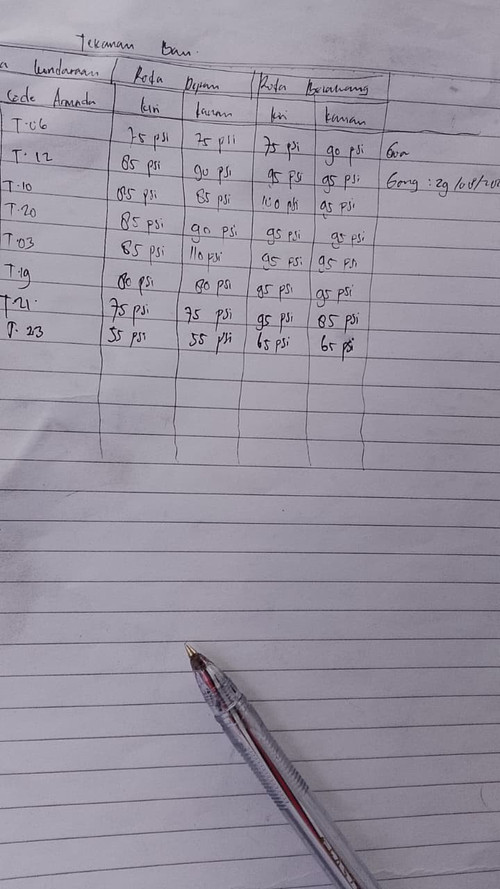 Tekanan Ban.
a Kendaraan Roda Depan Roda Belakang
Code Armada kiri kanan kiri kanan
T.06 75 psi 75 psi 75 psi 90 psi
T.12 85 psi 90 psi 95 psi 95 psi
T.10 85 psi 85 psi 100 psi 95 psi
T.20 85 psi 90 psi 95 psi 95 psi
T.03 85 psi 110 psi 95 psi 95 psi
T.19 80 psi 80 psi 95 psi
T.21. 75 psi 75 psi 95 psi 85 psi
T.23 55 psi 55 psi 65 psi 65 psi